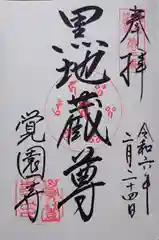 奉拝
令和六年
二月二十四日
黒地蔵尊
覚園寺